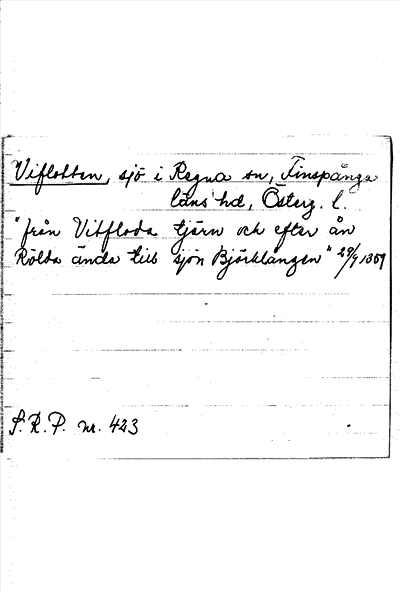 Viflotten, sjö i Regna sn, Finspånga
läns hd, Österg. l.
"från Vitfloda tjärn och efter ån
Rölda ända till sjön Björklangen" 29/9 1369
S.R.P. nr. 423